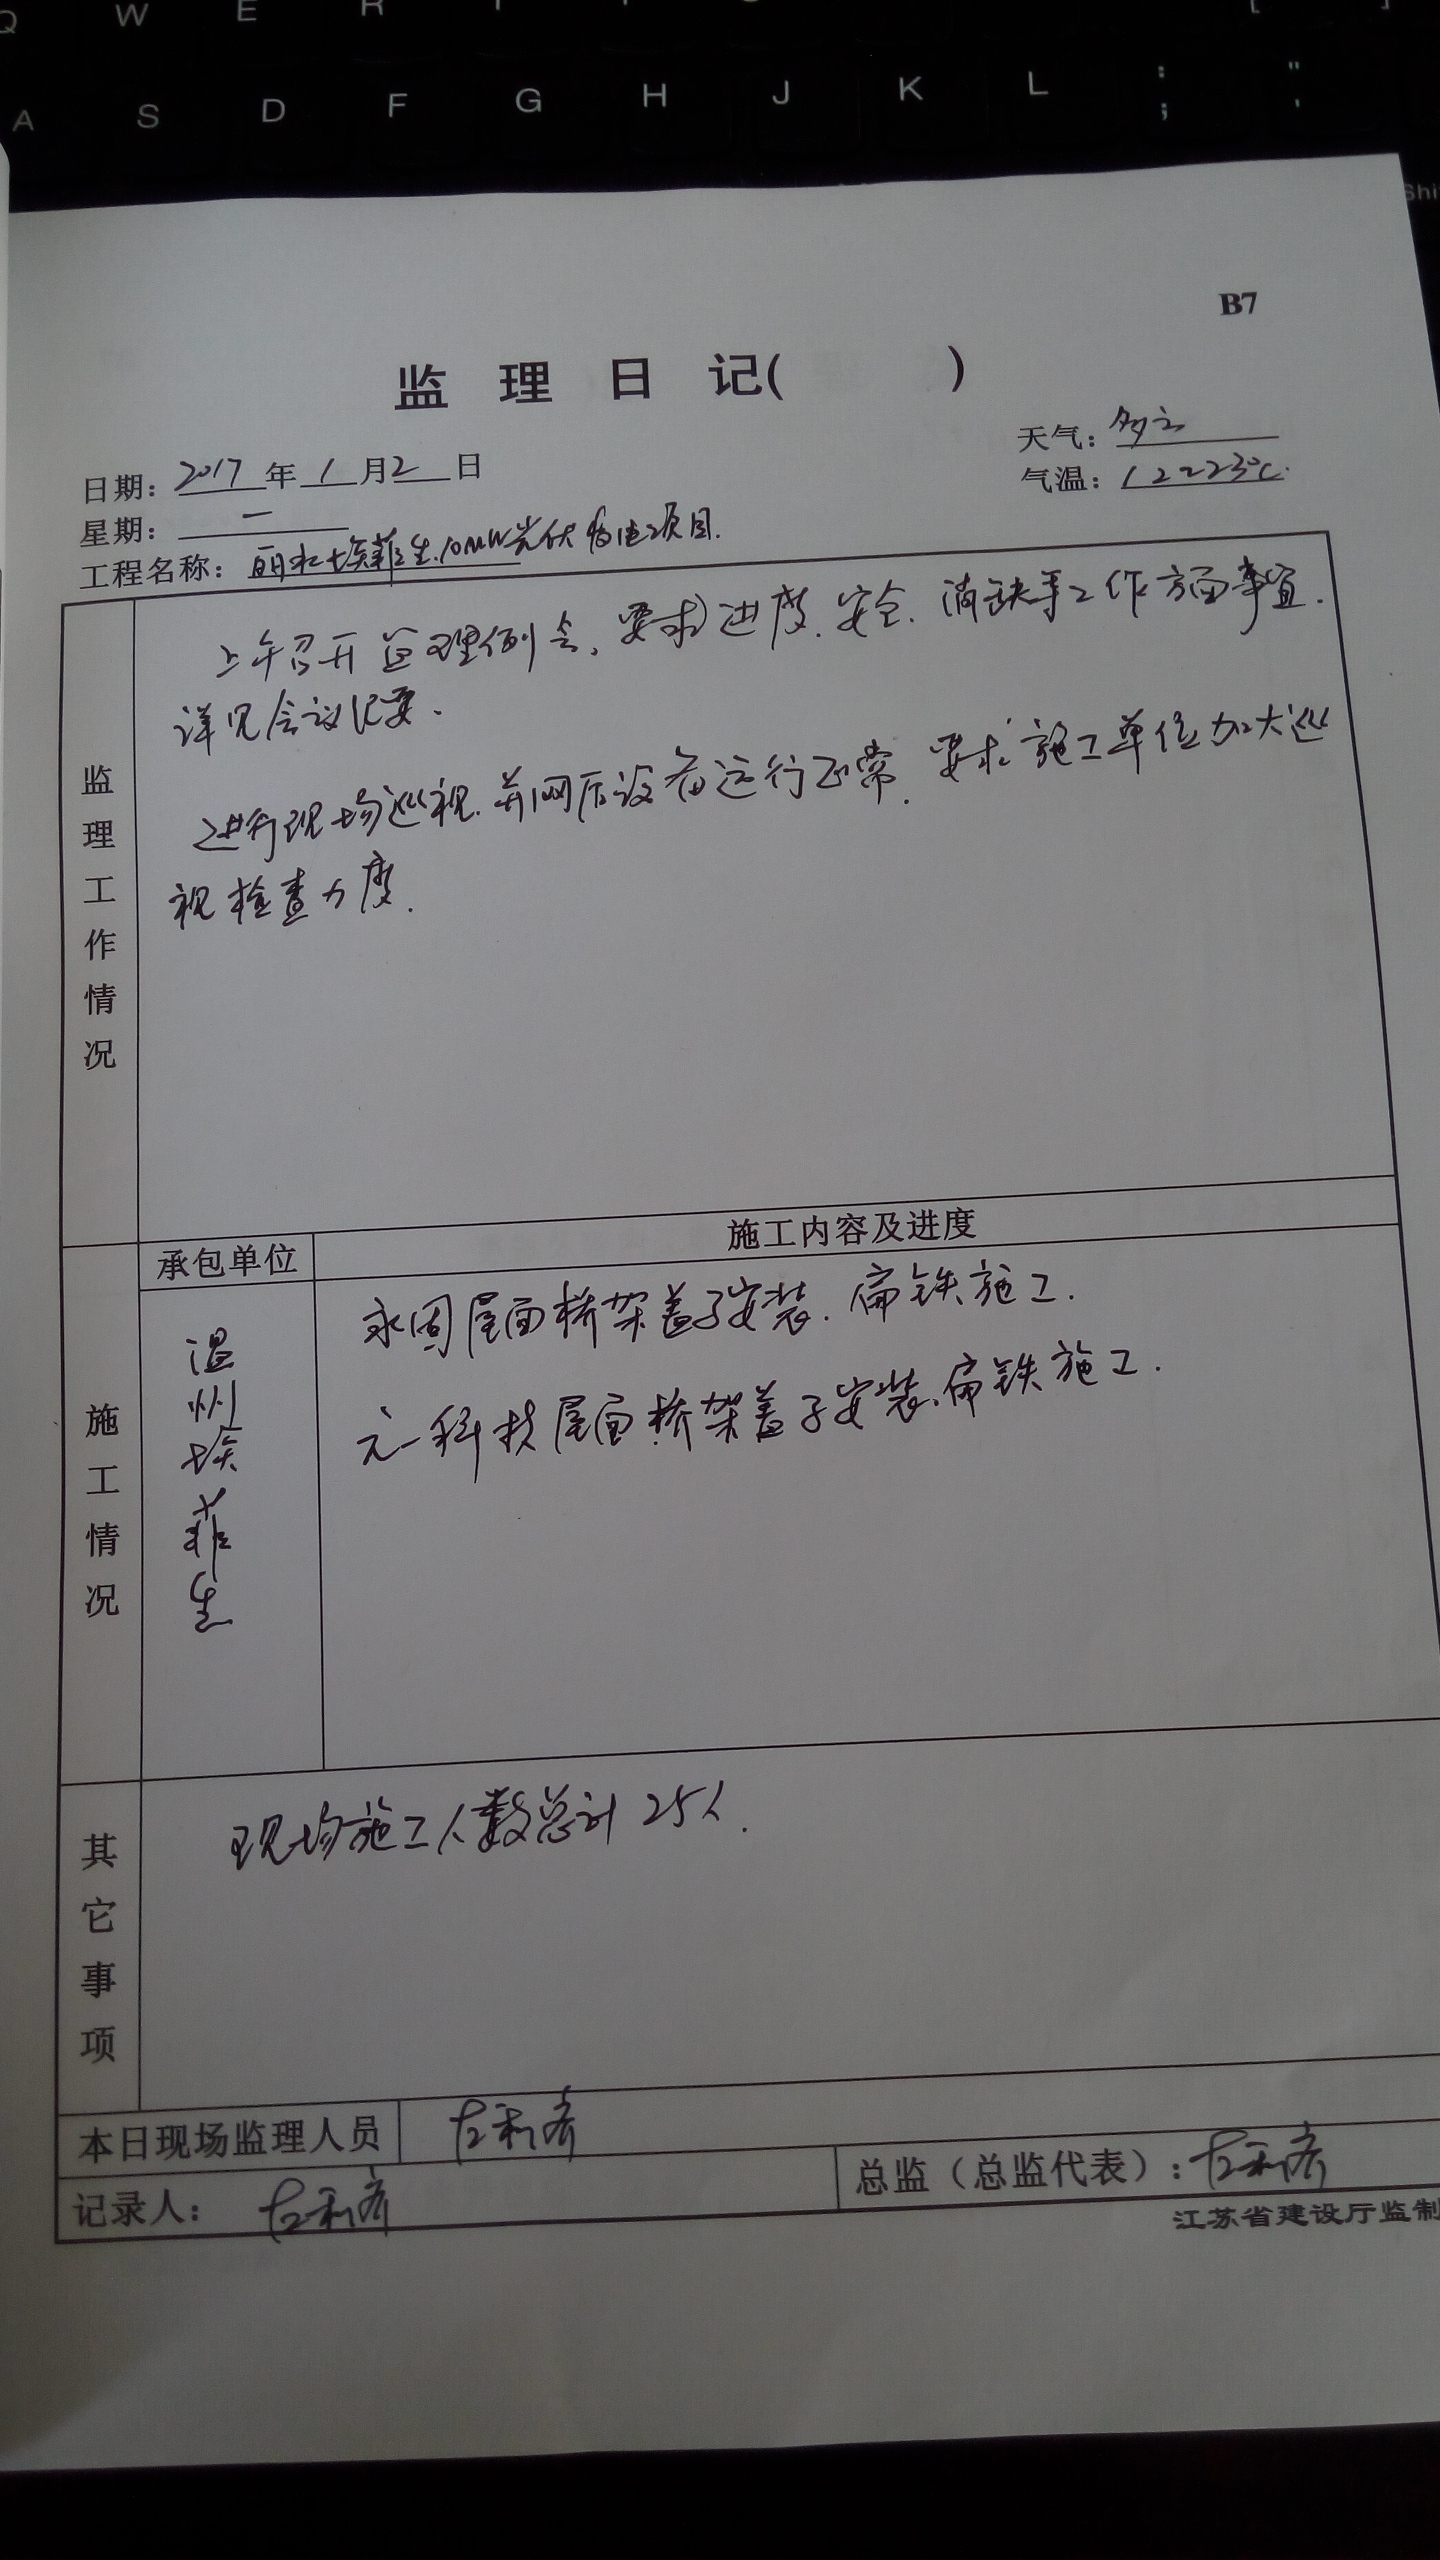 Q W E R T
A S D F G H J K L : ; " '
Shi
B7
监 理 日 记( )
日期: 2017 年 1 月 2 日
天气: 多云
星期: 一
气温: 12~23℃.
工程名称: 丽水埃菲生10MW光伏发电项目.
监理工作情况
上午召开监理例会,要求进度.安全.消缺等工作方面事宜.
详见会议纪要.
进行现场巡视.并网后设备运行正常.要求施工单位加大巡
视检查力度.
施工情况
承包单位
施工内容及进度
温州埃菲生
永固屋面桥架盖子安装.扁铁施工.
元一科技屋面桥架盖子安装.扁铁施工.
其它事项
现场施工人数总计25人.
本日现场监理人员
记录人:
总监(总监代表):
江苏省建设厅监制